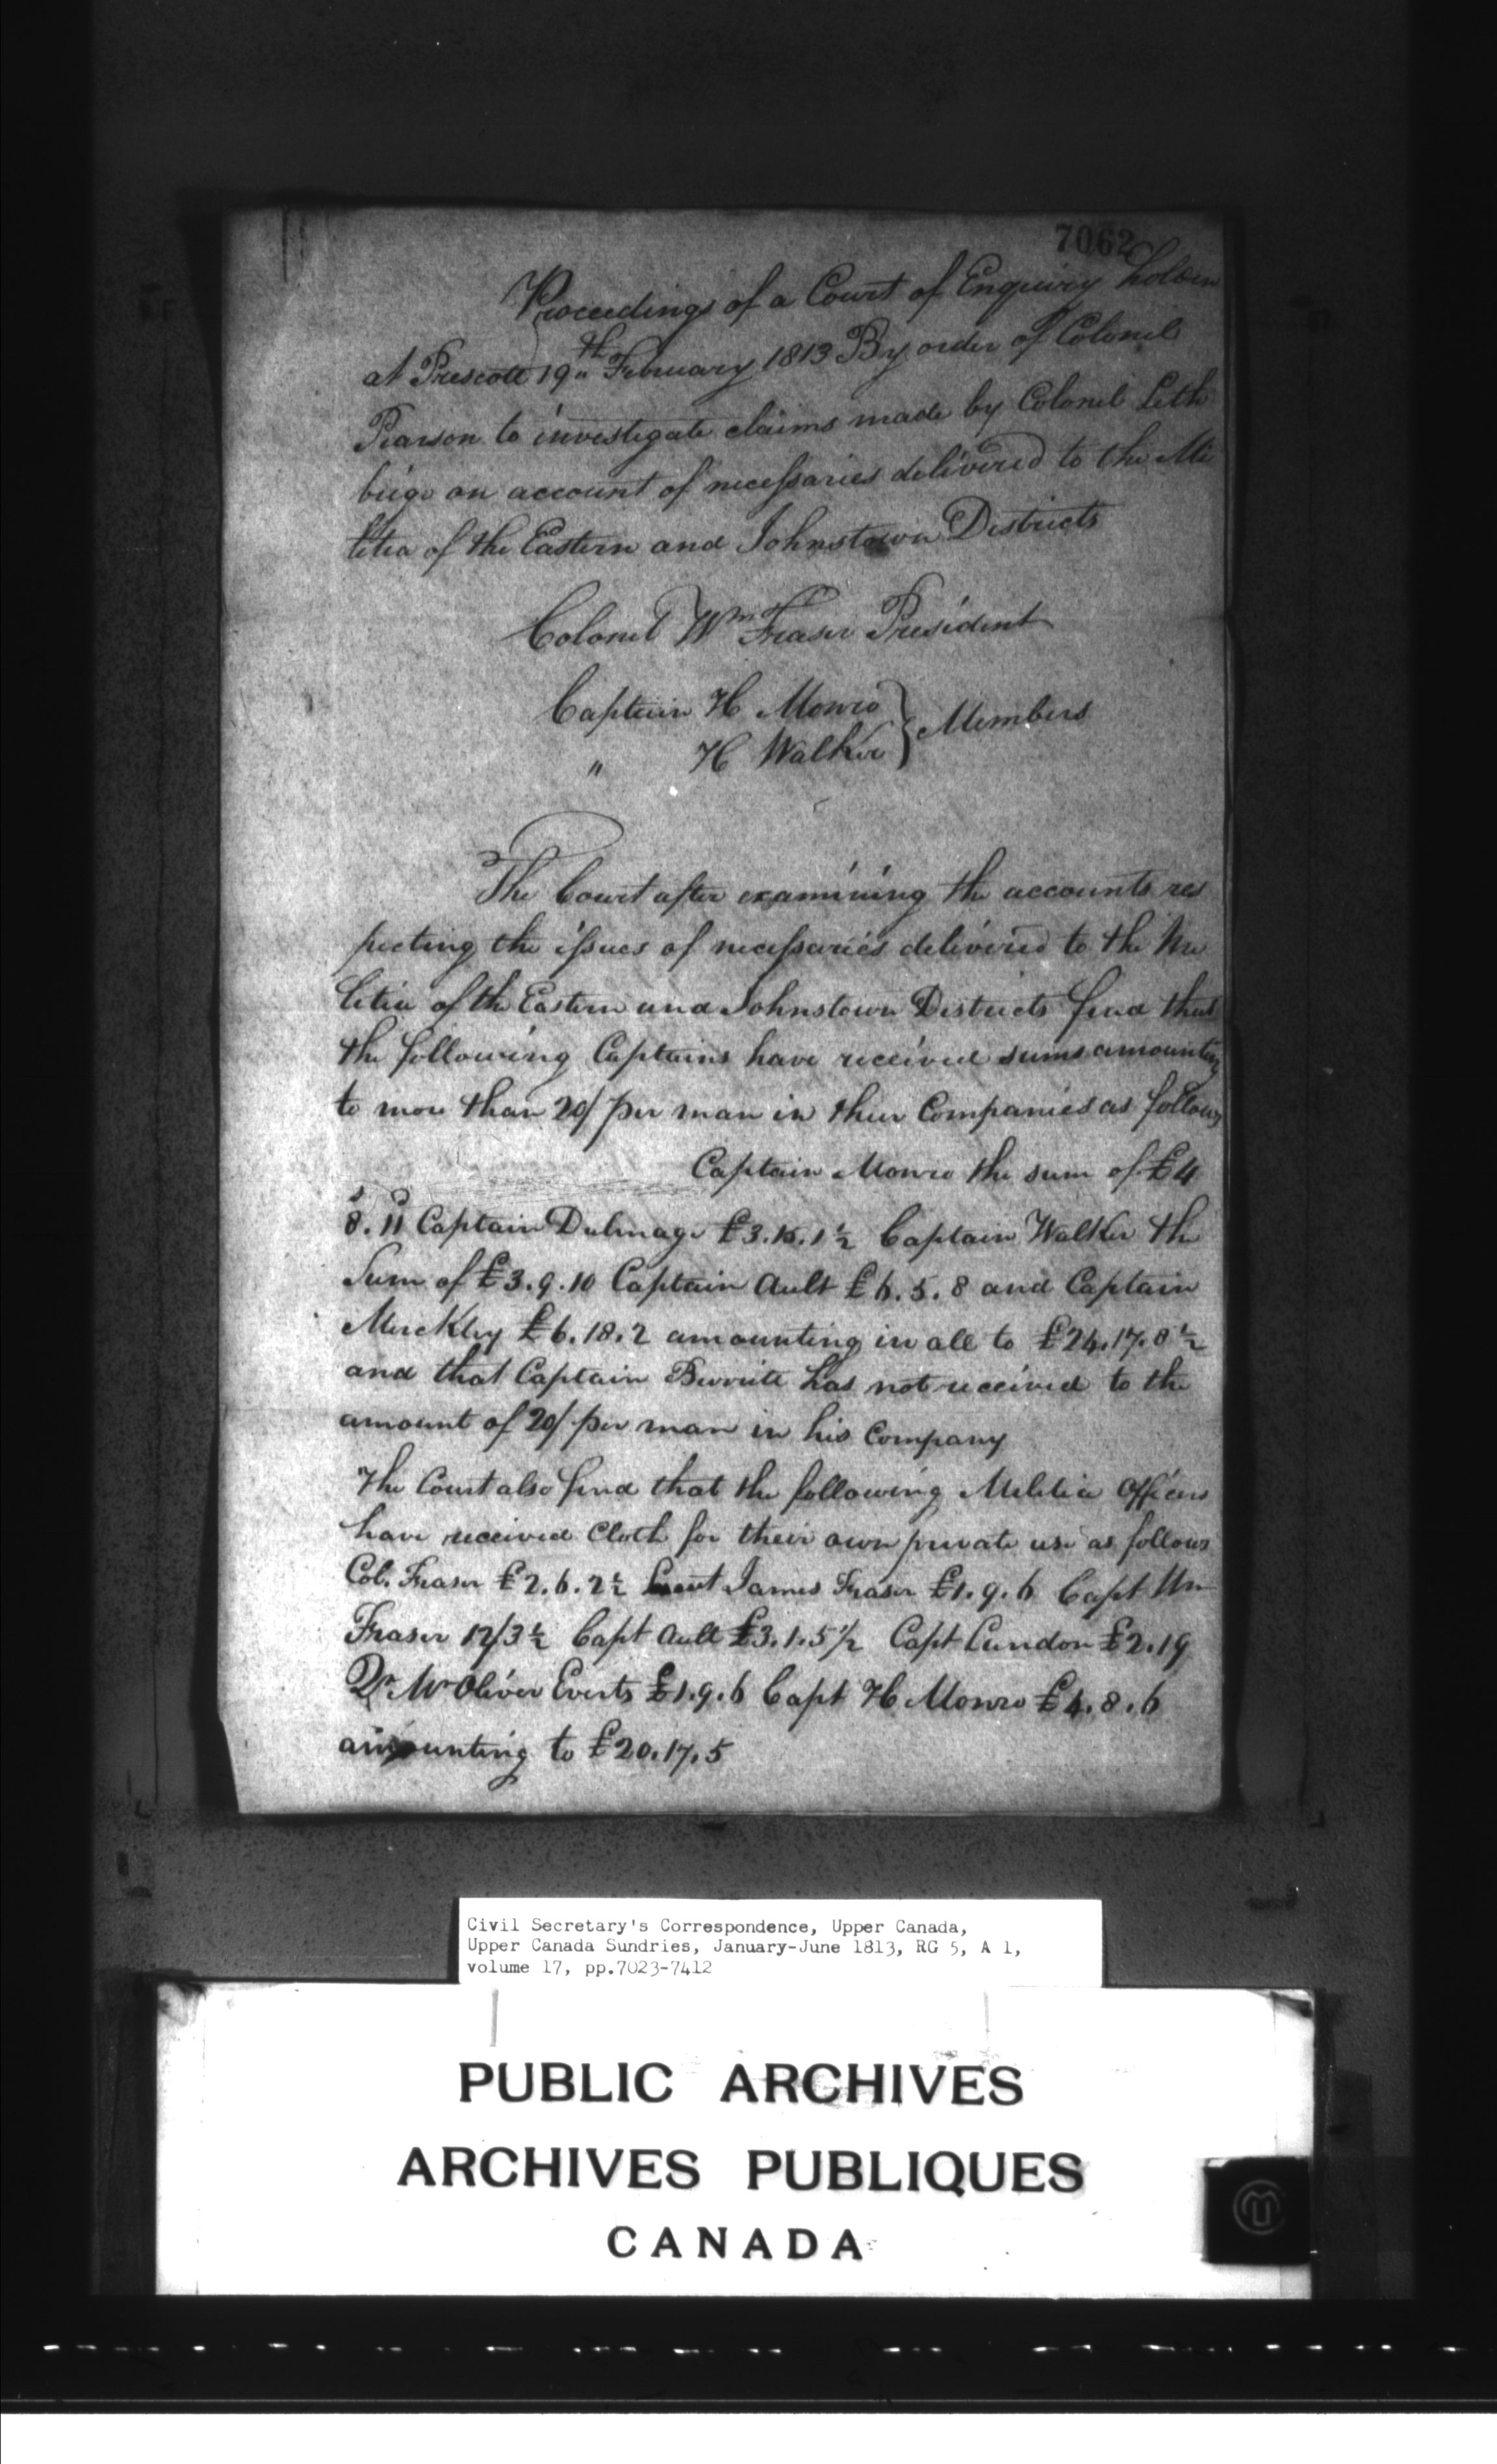 7062
Proceedings of a Court of Enquiry holden
at Prescott 19th February 1813 By order of Colonel
Pearson to investigate claims made by Colonel Leth
brige on account of necessaries delivered to the Mi
litia of the Eastern and Johnstown Districts
Colonel Wm Fraser President
Captain H Monro } Members
" H Walker
The Court after examining the accounts res
pecting the issues of necessaries delivered to the Mi
litia of the Eastern and Johnstown Districts find that
the following Captains have received sums amounting
to more than 20/ per man in their Companies as follows
Captain Monro the sum of £4
8. 11 Captain Dulmage £3.15.1½ Captain Walker the
Sum of £3.9.10 Captain Ault £6.5.8 and Captain
Merckley £6.18.2 amounting in all to £24.17.8½
and that Captain Burritt has not received to the
amount of 20/ per man in his Company
The Court also find that the following Militia Officers
have received Cloth for their own private use as follows
Col. Fraser £2.6.2½ Lieut James Fraser £1.9.6 Capt Wm
Fraser 12/3½ Capt Ault £3.1.5½ Capt Lundon £2.19
Qr Mr Oliver Everts £1.9.6 Capt H Monro £4.8.6
amounting to £20.17.5
Civil Secretary's Correspondence, Upper Canada,
Upper Canada Sundries, January-June 1813, RG 5, A 1,
volume 17, pp.7023-7412
PUBLIC ARCHIVES
ARCHIVES PUBLIQUES
CANADA